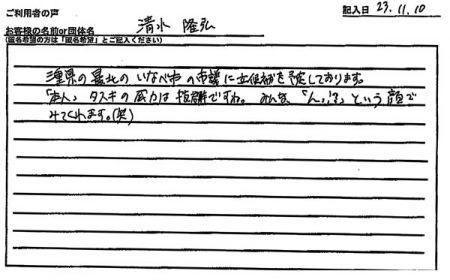 ご利用者の声
記入日 23.11.10
お客様の名前or団体名 清水 隆弘
(匿名希望の方は「匿名希望」とご記入ください)
三重県の最北の いなべ市の市議に立候補を予定しております。
「本人」タスキの威力は抜群ですね。みんな、「ん?」という顔で
みてくれます。(笑)